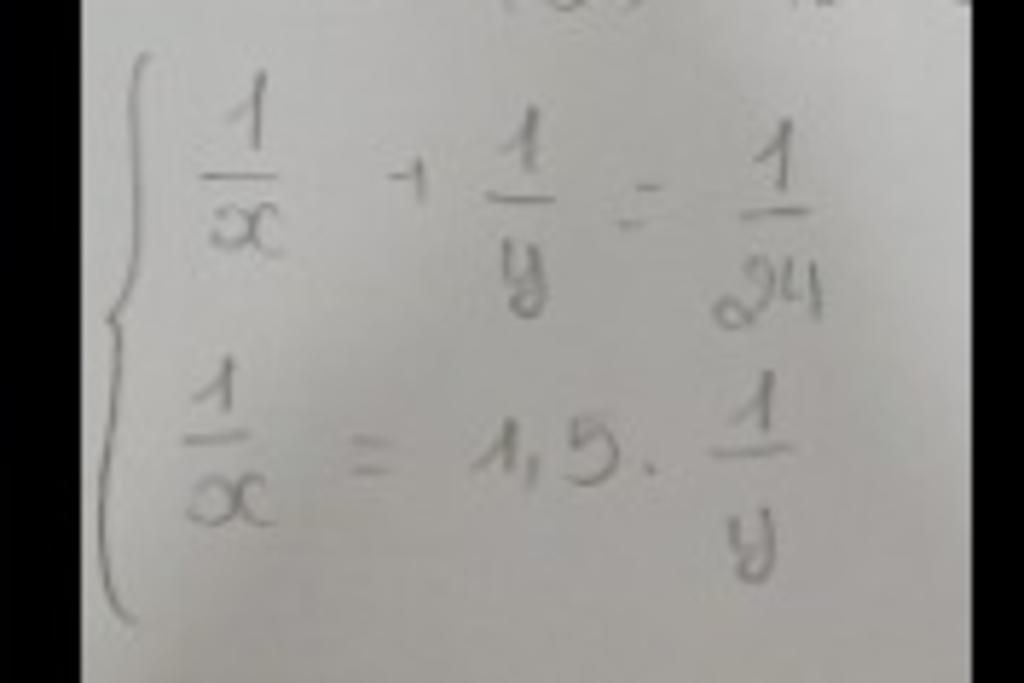 1/x + 1/y = 1/24
1/x = 1,5 . 1/y